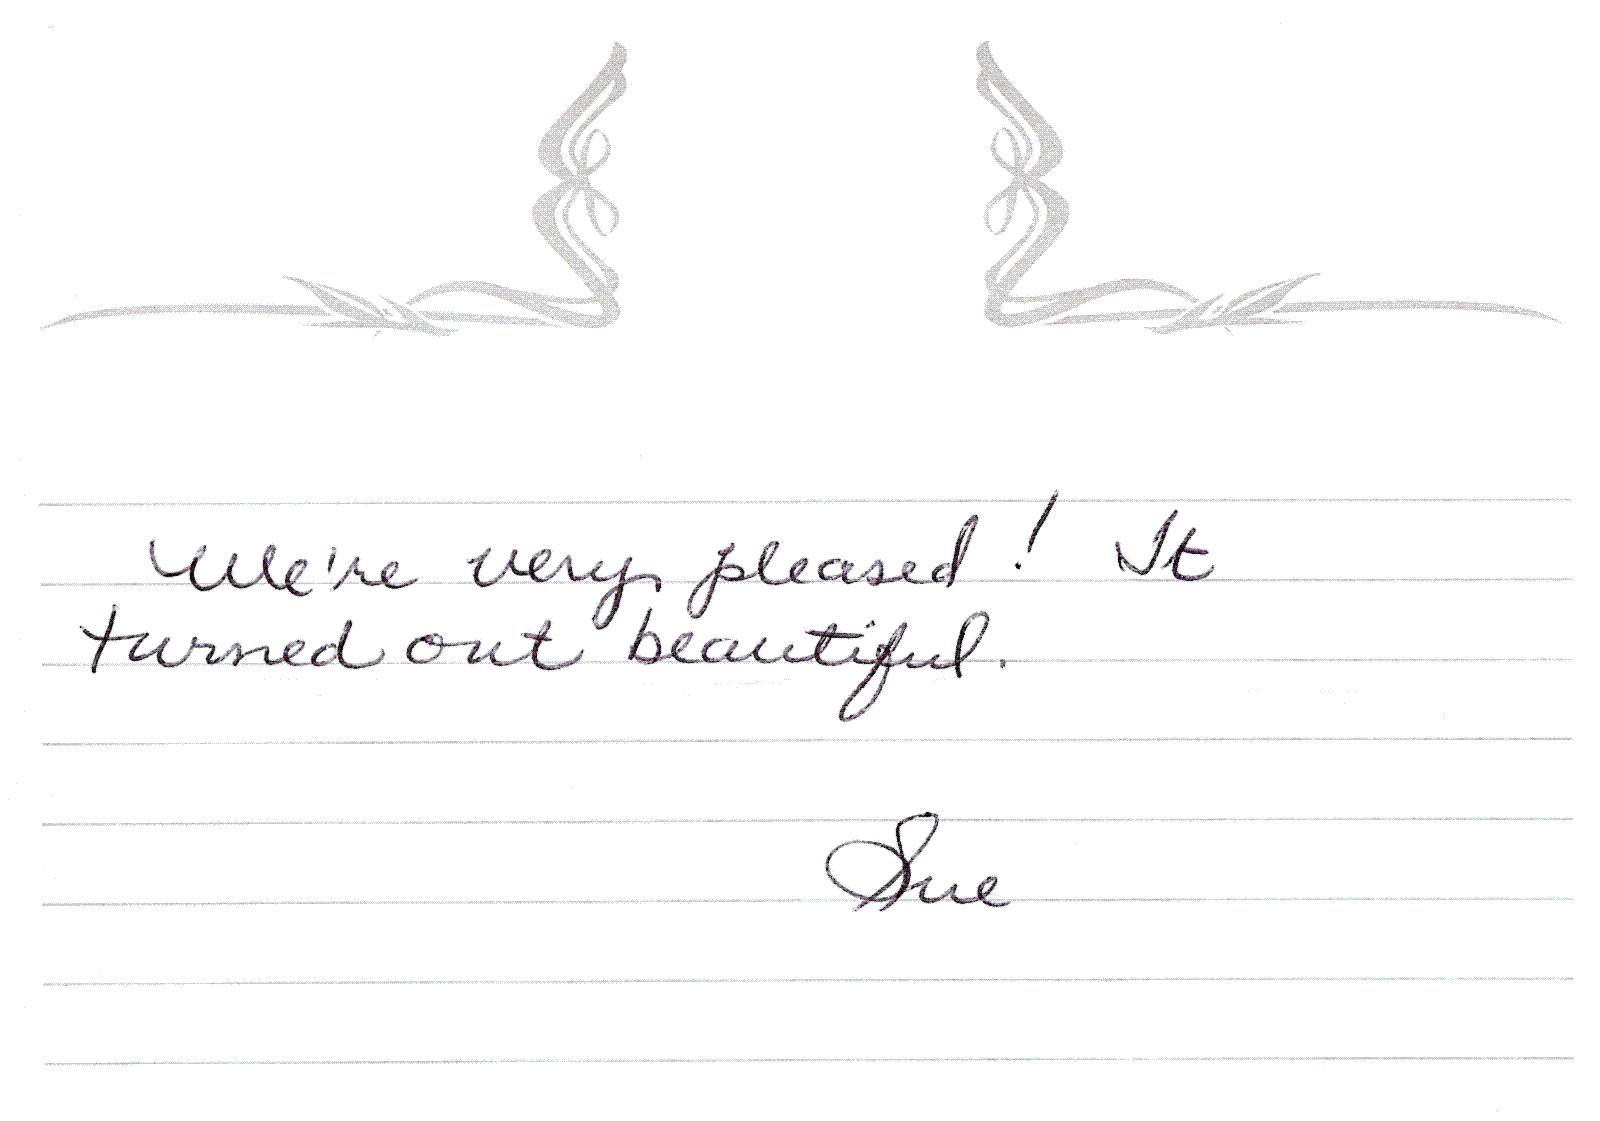 We're very pleased! It
turned out beautiful.
Sue